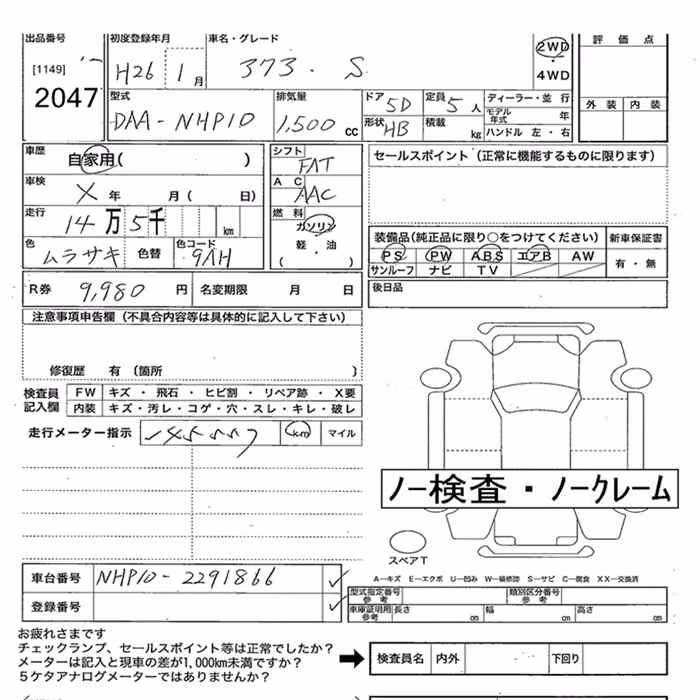 出品番号 初度登録年月 車名・グレード 2WD 評価点
[1149] H26 1月 373. S 4WD
2047 型式 排気量 ドア 5D 定員 5人 ディーラー・並行 外装 内装
DAA-NHP10 1,500cc 形状 HB 積載 kg モデル年式 年
ハンドル 左・右
車歴 自家用( ) シフト FAT セールスポイント(正常に機能するものに限ります)
車検 X年 月( 日) AC AAC
走行 14万5千 km 燃料 ガソリン
軽・油
( )
色 ムラサキ 色替 色コード 9AH
装備品(純正品に限り○をつけてください) 新車保証書
PS PW ABS エアB AW 有・無
サンルーフ ナビ TV
R券 9,980円 名変期限 月 日 後日品
注意事項申告欄(不具合内容等は具体的に記入して下さい)
修復歴 有(箇所 )
検査員記入欄 FW キズ・飛石・ヒビ割・リペア跡・X要
内装 キズ・汚レ・コゲ・穴・スレ・キレ・破レ
走行メーター指示 km マイル
ノー検査・ノークレーム
スペアT
車台番号 NHP10-2291866
A―キズ E―エクボ U―凹み W―補修跡 S―サビ C―腐食 XX―交換済
型式指定番号 参考 類別区分番号 参考
登録番号 車庫証明用参考 長さ cm 幅 cm 高さ cm
お疲れさまです
チェックランプ、セールスポイント等は正常でしたか?
メーターは記入と現車の差が1,000km未満ですか?
5ケタアナログメーターではありませんか?
検査員名 内外 下回り